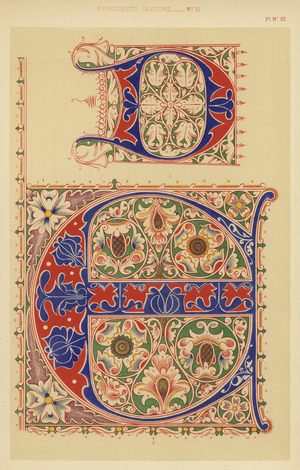 FOURTEENTH CENTURY. Nº 21
Pl. Nº 35.